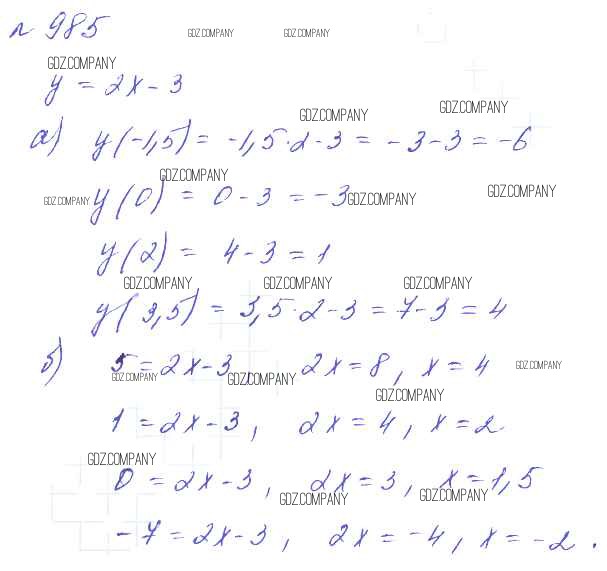 № 985
GDZ.COMPANY GDZ.COMPANY
GDZ.COMPANY
y = 2x - 3
GDZ.COMPANY GDZ.COMPANY
а) y(-1,5) = -1,5·2-3 = -3-3 = -6
GDZ.COMPANY
GDZ.COMPANY y(0) = 0-3 = -3 GDZ.COMPANY GDZ.COMPANY
y(2) = 4-3 = 1
GDZ.COMPANY GDZ.COMPANY GDZ.COMPANY
y(3,5) = 3,5·2-3 = 7-3 = 4
б) 5 = 2x-3 2x = 8, x = 4 GDZ.COMPANY
GDZ.COMPANY GDZ.COMPANY
GDZ.COMPANY
1 = 2x-3, 2x = 4, x = 2
GDZ.COMPANY
0 = 2x-3, 2x = 3, x = 1,5
GDZ.COMPANY GDZ.COMPANY
-7 = 2x-3, 2x = -4, x = -2.